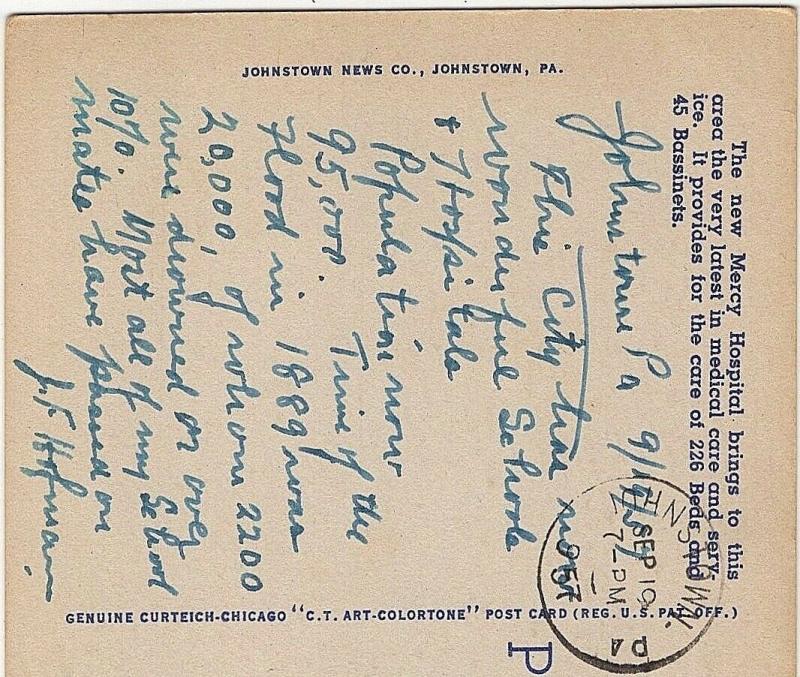 The new Mercy Hospital brings to this
area the very latest in medical care and serv-
ice. It provides for the care of 226 Beds and
45 Bassinets.
Johnstown Pa 9/19/57
This City has most
wonderful Schools
& Hospitals
Population now
95,000. Time of the
Flood in 1889 was
20,000, of whom 2200
were drowned or over
10%. Most all of my School
mates have passed on
J. F. Hofmann
JOHNSTOWN NEWS CO., JOHNSTOWN, PA.
GENUINE CURTEICH-CHICAGO "C.T. ART-COLORTONE" POST CARD (REG. U.S. PAT. OFF.)
JOHNSTOWN
SEP 19
7-PM
1957
PA
P